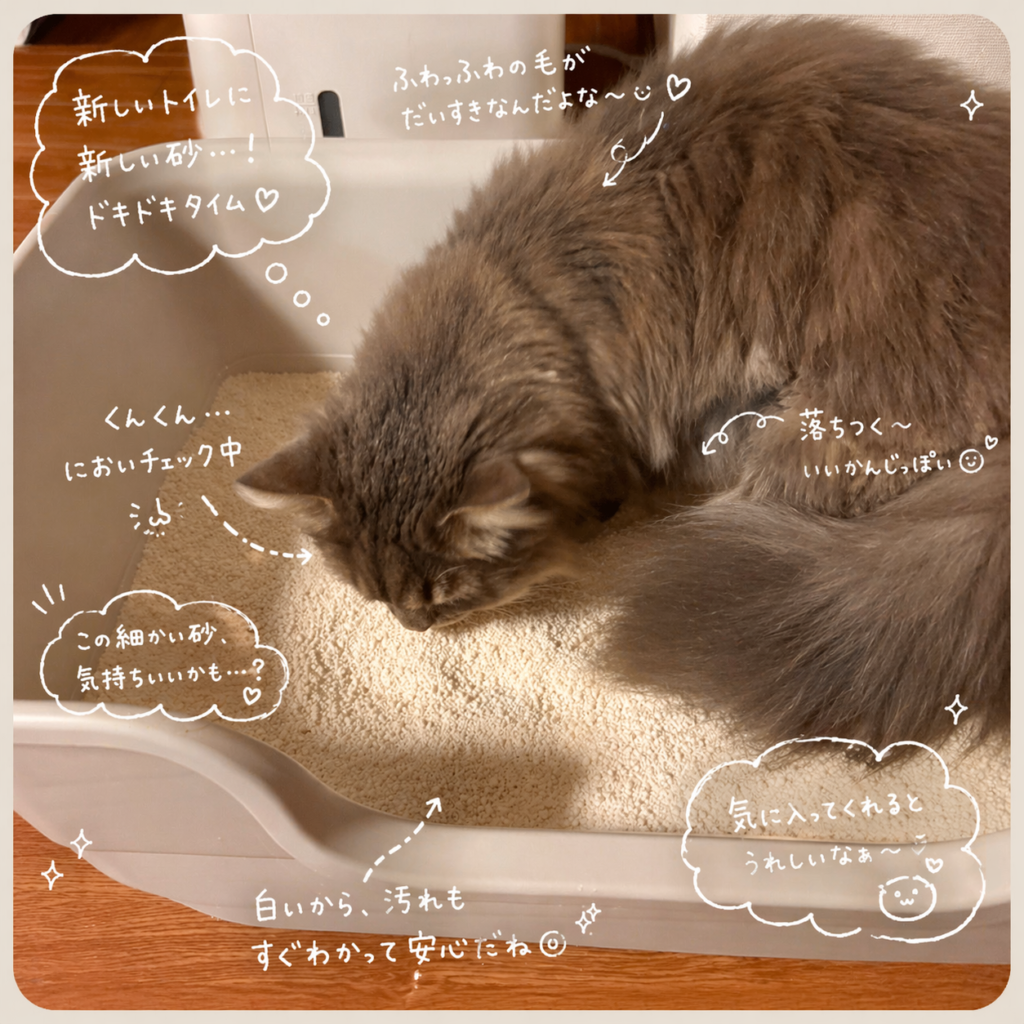 新しいトイレに
新しい砂…!
ドキドキタイム♡
ふわっふわの毛が
だいすきなんだよな〜
くんくん…
においチェック中
落ちつく〜
いいかんじっぽい
この細かい砂、
気持ちいいかも…?
気に入ってくれると
うれしいなぁ〜
白いから、汚れも
すぐわかって安心だね